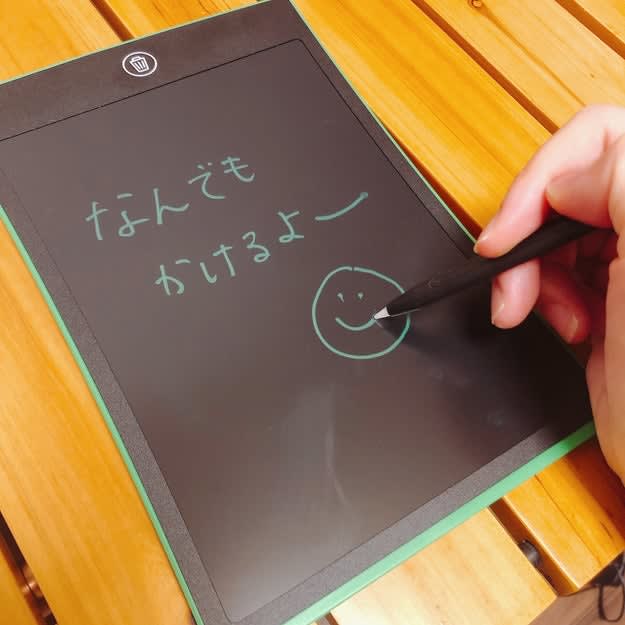 なんでも
かけるよー